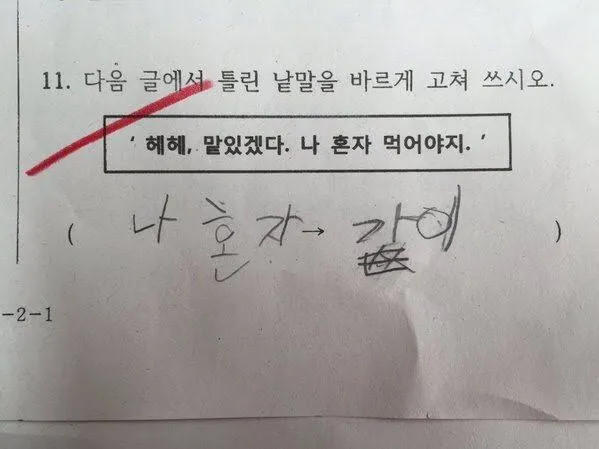 11. 다음 글에서 틀린 낱말을 바르게 고쳐 쓰시오.
' 헤헤, 맡있겠다. 나 혼자 먹어야지. '
( 나 혼자→ )
-2-1